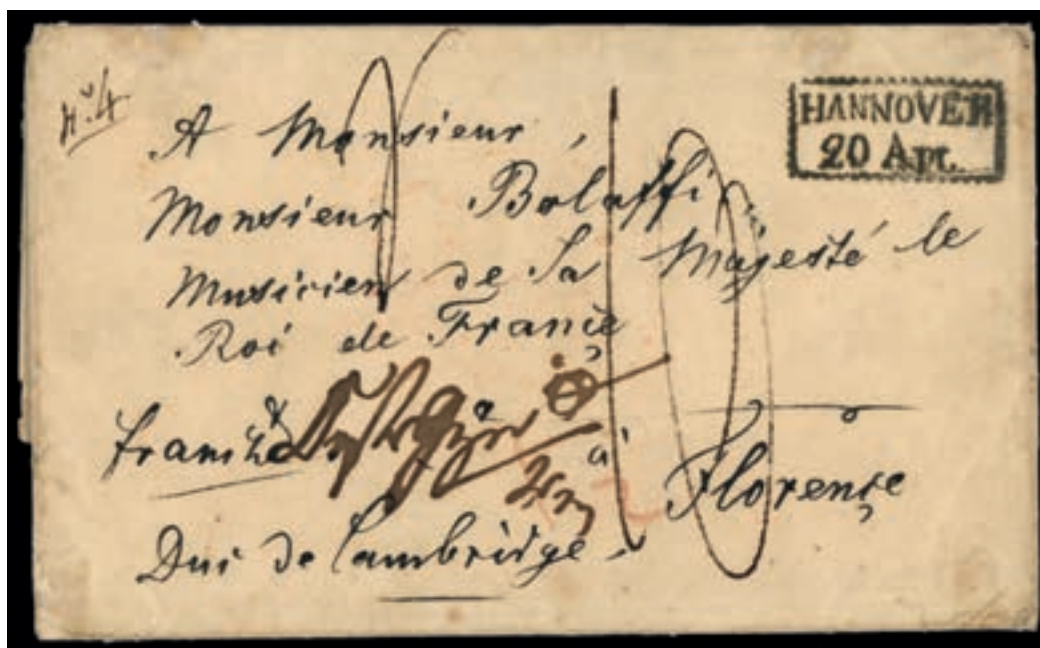 No. 4
HANNOVER
20 Apr.
A Monsieur,
Monsieur Bolaffi,
Musicien de Sa Majesté le
Roi de France
à
Florence
Duc de Cambridge.